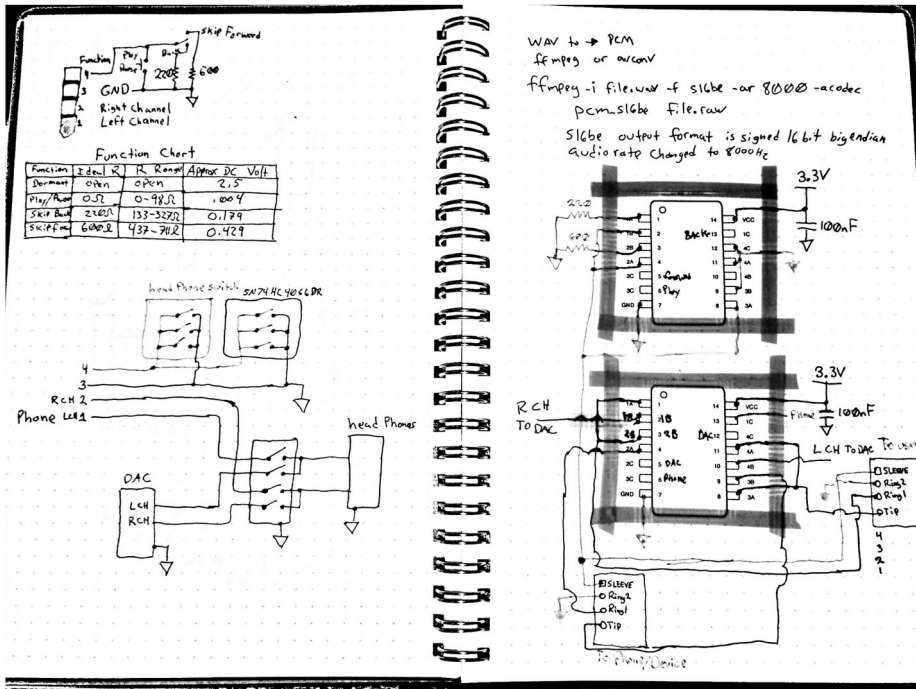 skip Forward
Function
Play
Pause
Back
4
220
600
3
GND
2 Right Channel
1 Left Channel
Function Chart
Function Ideal R R Range Approx DC Volt
Dormant open open 2.5
Play/Pause 0Ω 0-98Ω .004
Skip Back 220Ω 133-327Ω 0.179
Skip for 600Ω 437-711Ω 0.429
head Phone switch
SN74HC4066DR
4
3
RCH 2
Phone LCH 1
head Phones
DAC
LCH
RCH
WAV to → PCM
ffmpeg or avconv
ffmpeg -i file.wav -f s16be -ar 8000 -acodec
pcm_s16be file.raw
S16be output format is signed 16 bit big endian
audio rate changed to 8000Hz
3.3V
220
600
100nF
1A 1 14 VCC
1B 2 Back 13 1C
2B 3 12 4C
2A 4 11 4A
2C 5 forward 10 4B
3C 6 Play 9 3B
GND 7 8 3A
3.3V
RCH
TO DAC
100nF
1A 1 14 VCC Phone
1B 2 1B 13 1C
2B 3 2B DAC 12 4C
2A 4 11 4A
2C 5 DAC 10 4B
3C 6 Phone 9 3B
GND 7 8 3A
LCH TO DAC
To user
SLEEVE
Ring2
Ring1
Tip
4
3
2
1
SLEEVE
Ring2
Ring1
Tip
To Phone/Device